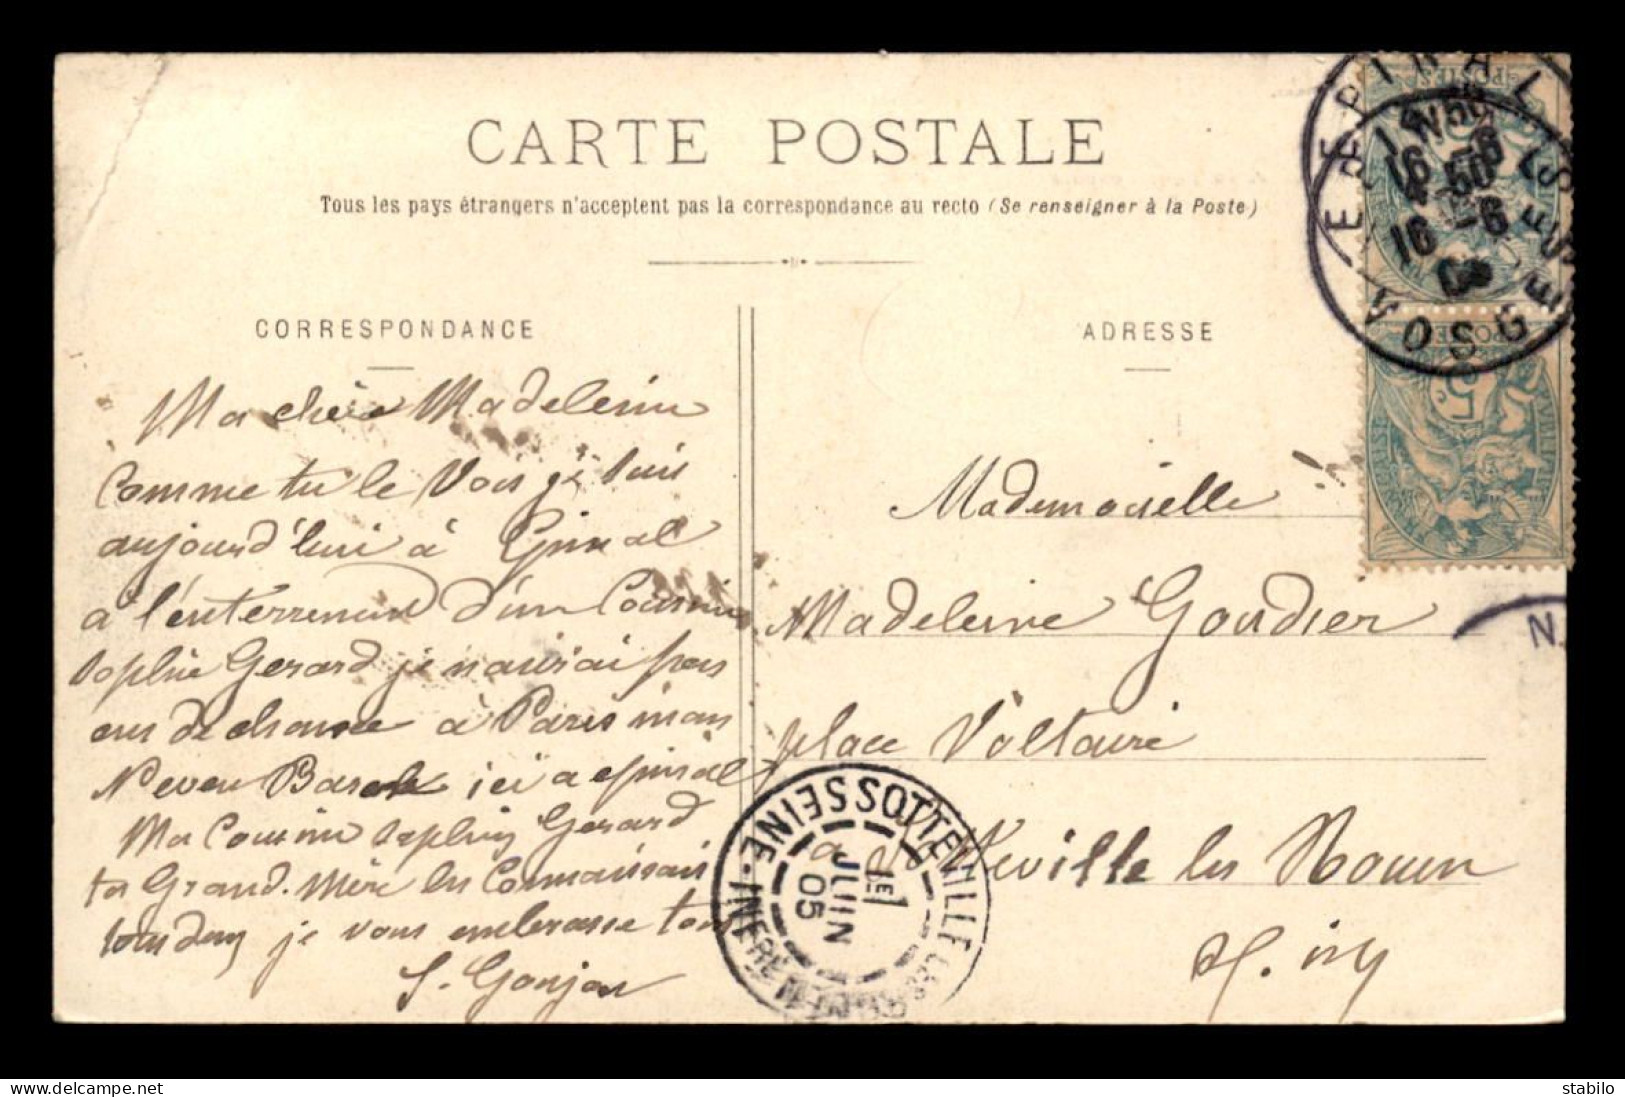 CARTE POSTALE
Tous les pays étrangers n'acceptent pas la correspondance au recto (Se renseigner à la Poste)
CORRESPONDANCE
Ma chère Madeleine
Comme tu le vois je suis
aujourd'hui à Epinal
a l'enterrement d'un Cousin
Gerard je n'aurai pas
de chance à Paris mon
Neveu ici a epinal
Ma Cousine Gerard
ta Grand-Mère les Connaissait
tous deux je vous embrasse tous
ADRESSE
Mademoiselle
Madeleine Goudier
place Voltaire
a Sotteville les Rouen
S. inf
EPINAL
VOSGES
16 -6
16 -6
POSTES
5c
SOTTEVILLE LES ROUEN
SEINE-INFRE
1ER
JUIN
05
N
delcampe.net
stabilo